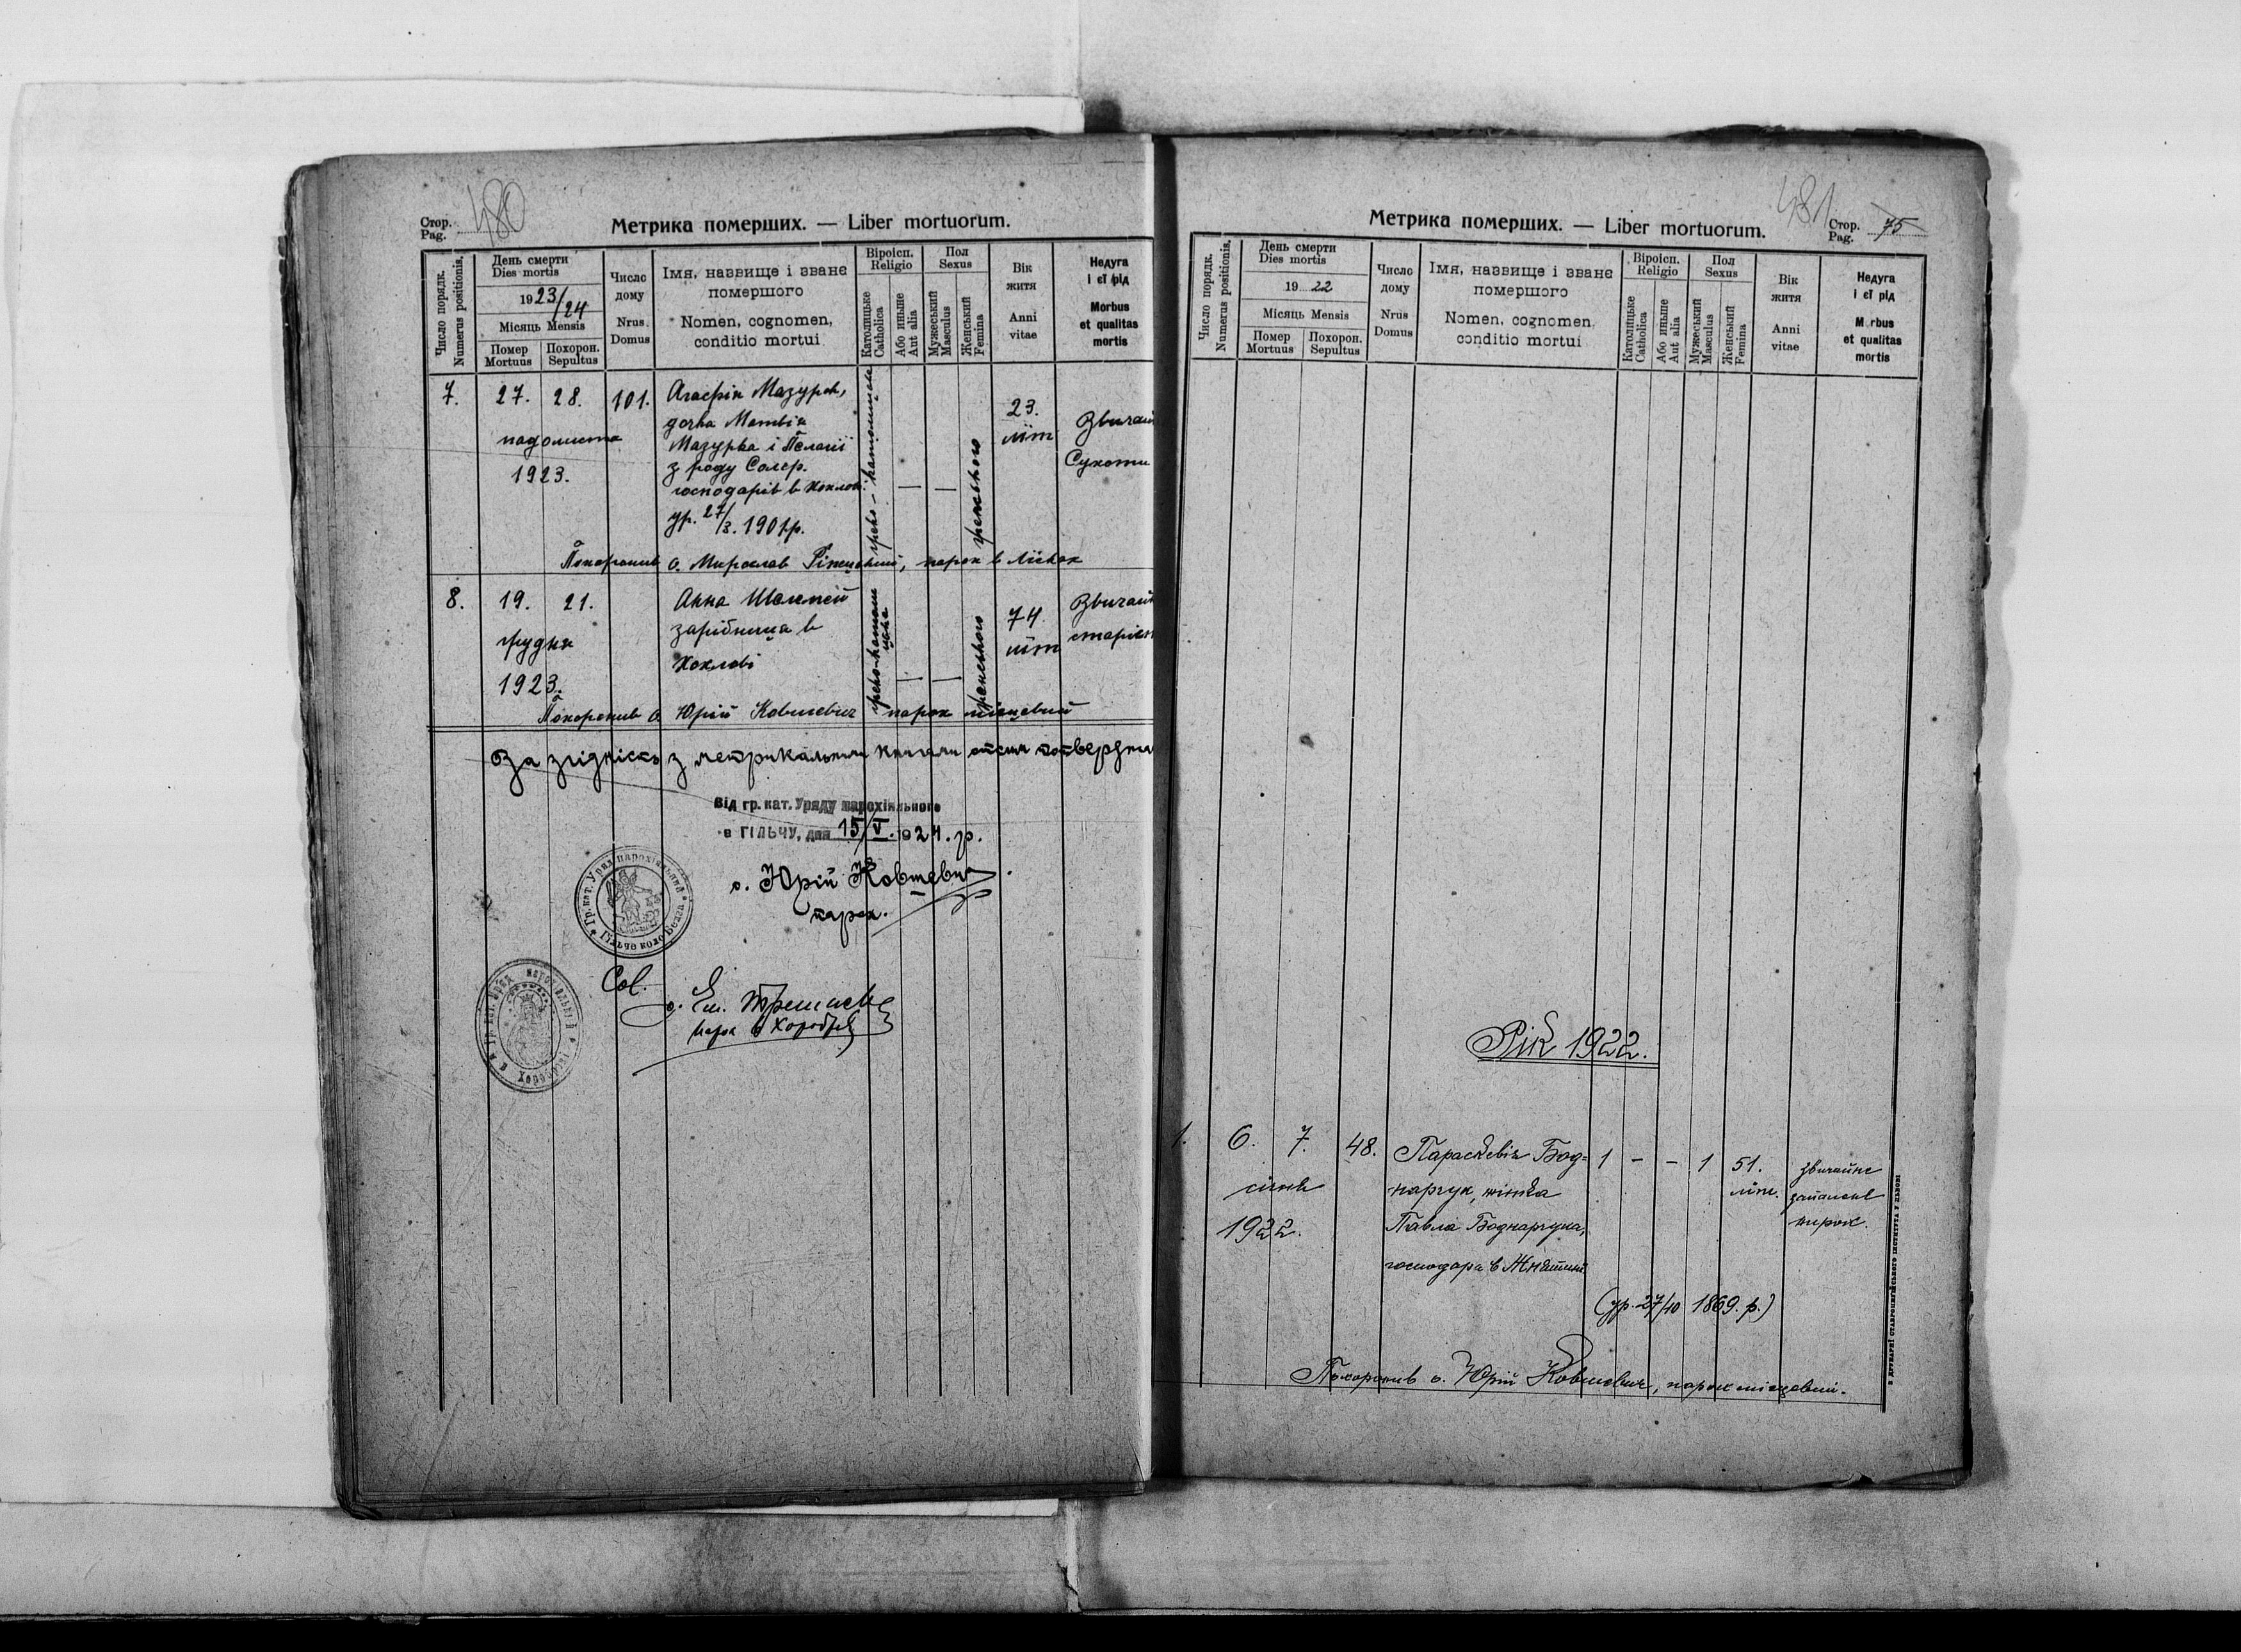 Стор.
Pag. 480
Метрика померших. — Liber mortuorum.
Число порядк.
Numerus positionis.
День смерти
Dies mortis
1923/24
Місяць Mensis
Помер
Mortuus
Похорон.
Sepultus
Число
дому
Nrus
Domus
Імя, назвище і зване
помершого
Nomen, cognomen,
conditio mortui
Віроісп.
Religio
Католицьке
Catholica
Або иньше
Aut alia
Пол
Sexus
Мужеський
Masculus
Женський
Femina
Вік
житя
Anni
vitae
Недуга
і єї рід
Morbus
et qualitas
mortis
7. 27. 28. 101. Агафія Мазурок,
дочка Матвія
падолиста
Мазурка і Пелагії
1923.
з роду Соляр.
господарів в Хохлов.
ур. 27/3. 1901р.
греко-католицьке
— —
женського
23.
літ
Звичай
Сухоти
Похоронив о. Мирослав Ріпецький, парох в Лісках
8. 19. 21. Анна Шелемей
зарібниця в
грудня
Хохлові
1923.
греко-католицьке
— —
женського
74
літ
Звичай
старіст
Похоронив о. Юрій Ковшевич парох місцевий
За згідність з метрикальними книгами отсим потверджа
Від гр. кат. Уряду парохіяльного
в ГІЛЬЧУ, дня 15/V. 1924. р.
о. Юрій Ковшевич
парох.
Гр. кат. Уряд парохіяльний
Гільче коло Белза
Col.
парох в Хороброві
481
Метрика померших. — Liber mortuorum.
Стор.
Pag. 75
Число порядк.
Numerus positionis.
День смерти
Dies mortis
1922
Місяць Mensis
Помер
Mortuus
Похорон.
Sepultus
Число
дому
Nrus
Domus
Імя, назвище і зване
помершого
Nomen, cognomen,
conditio mortui
Віроісп.
Religio
Католицьке
Catholica
Або иньше
Aut alia
Пол
Sexus
Мужеський
Masculus
Женський
Femina
Вік
житя
Anni
vitae
Недуга
і єї рід
M rbus
et qualitas
mortis
Рік 1922.
1. 6. 7. 48. Параскевія Бод= 1 — — 1 51. звичайне
січня нарчук, жінка літ. запаленє
1922. Павла Боднарчука, нирок.
господаря в Жнятині
(ур. 27/10 1869. р.)
Похоронив о. Юрій Ковшевич, парох місцевий.
З ДРУКАРНЇ СТАВРОПИГІЙСЬКОГО ІНСТИТУТА У ЛЬВОВІ